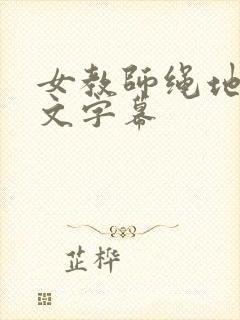 女教師绳地
文字幕
芷桦